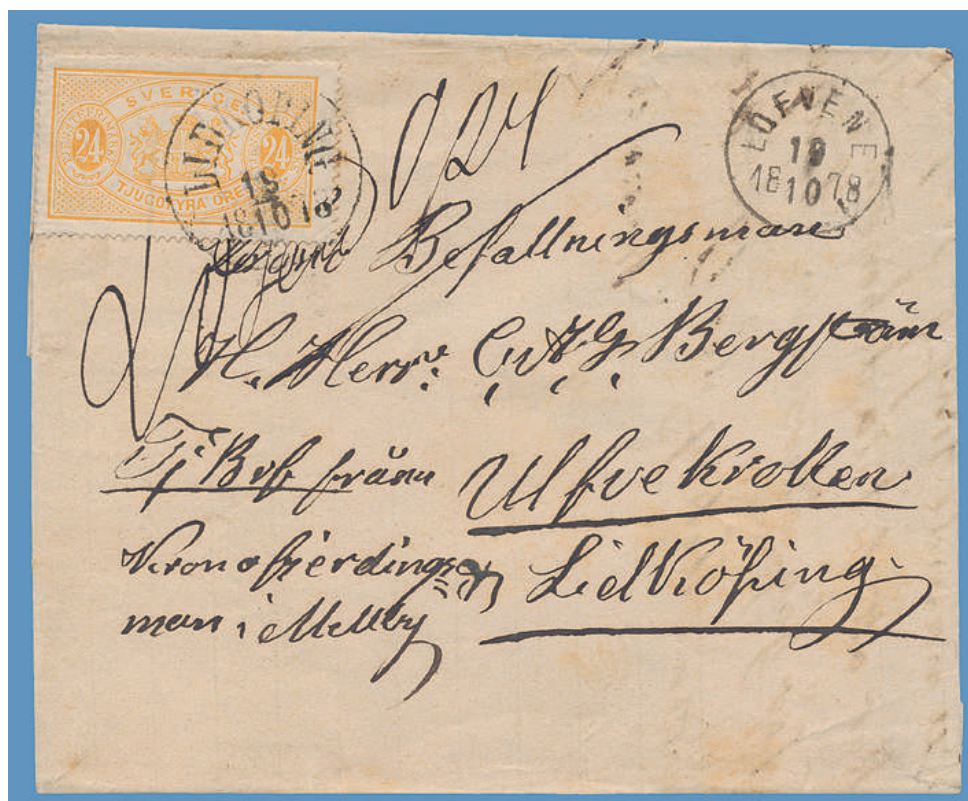 SVERIGE
24 24
TJUGOFYRA ÖRE
LIDKÖPING
19
18 10 78
LÖFVENE
19
18 10 78
Befallningsman
H. Herr
Tj Brf från
Ulfvekrollen
Kronofjerdings=
man i Melby
Lidköping